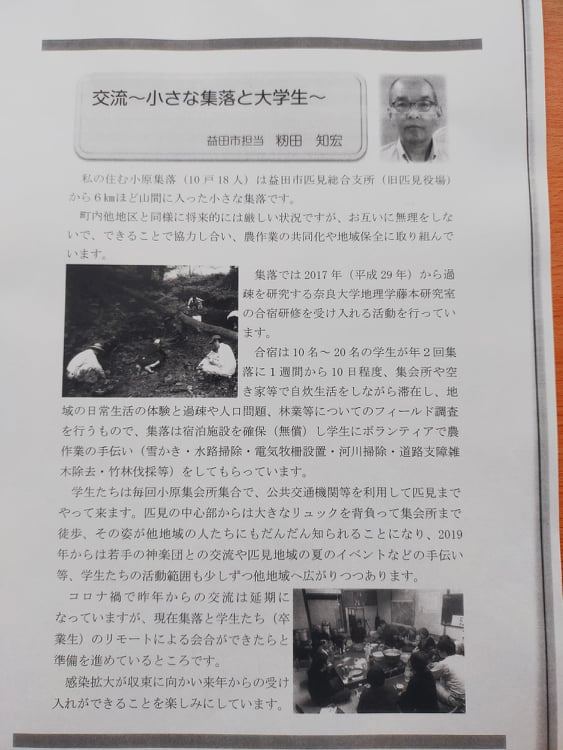 交流～小さな集落と大学生～
益田市担当　籾田　知宏
私の住む小原集落（10戸18人）は益田市匹見総合支所（旧匹見役場）
から６㎞ほど山間に入った小さな集落です。
町内他地区と同様に将来的には厳しい状況ですが、お互いに無理をしな
いで、できることで協力し合い、農作業の共同化や地域保全に取り組んで
います。
集落では2017年（平成29年）から過
疎を研究する奈良大学地理学藤本研究室
の合宿研修を受け入れる活動を行ってい
ます。
合宿は10名～20名の学生が年２回集
落に１週間から10日程度、集会所や空
き家等で自炊生活をしながら滞在し、地
域の日常生活の体験と過疎や人口問題、林業等についてのフィールド調査
を行うもので、集落は宿泊施設を確保（無償）し学生にボランティアで農
作業の手伝い（雪かき・水路掃除・電気牧柵設置・河川掃除・道路支障雑
木除去・竹林伐採等）をしてもらっています。
学生たちは毎回小原集会所集合で、公共交通機関等を利用して匹見まで
やって来ます。匹見の中心部からは大きなリュックを背負って集会所まで
徒歩、その姿が他地域の人たちにもだんだん知られることになり、2019
年からは若手の神楽団との交流や匹見地域の夏のイベントなどの手伝い
等、学生たちの活動範囲も少しずつ他地域へ広がりつつあります。
コロナ禍で昨年からの交流は延期に
なっていますが、現在集落と学生たち（卒
業生）のリモートによる会合ができたらと
準備を進めているところです。
感染拡大が収束に向かい来年からの受け
入れができることを楽しみにしています。